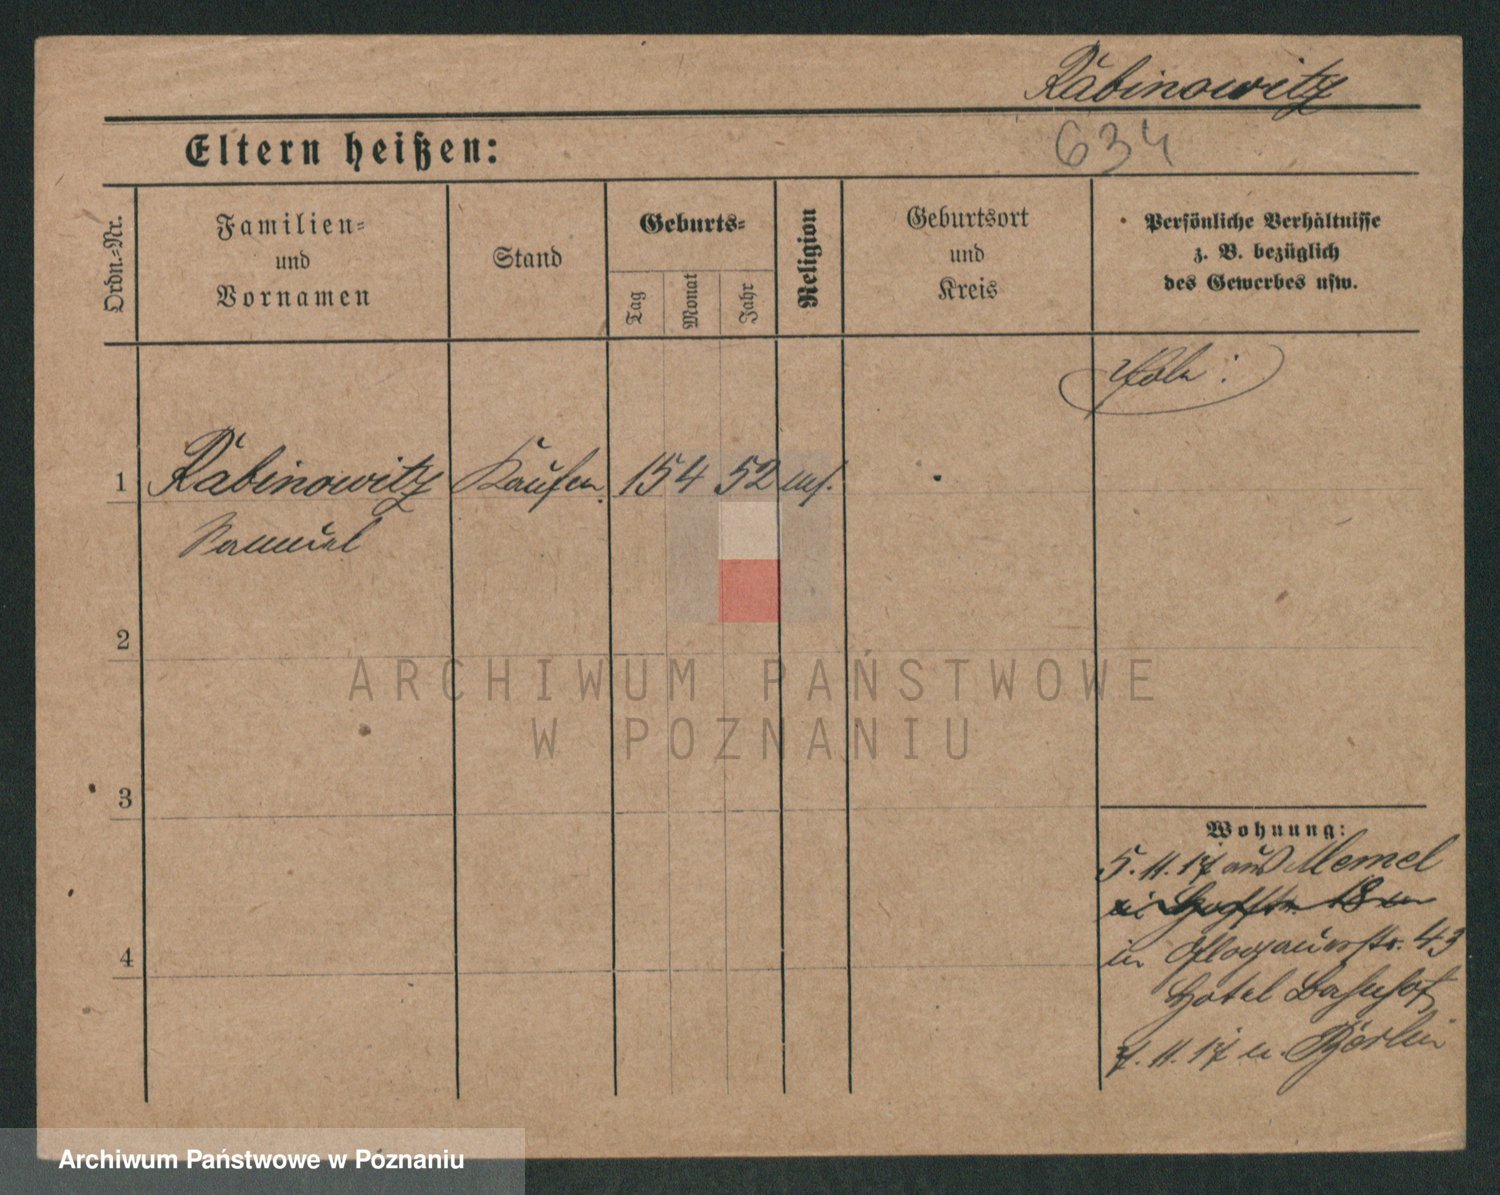 Rabinowitz
Eltern heißen:
634
Ordn.-Nr.
Familien-
und
Vornamen
Stand
Geburts-
Tag
Monat
Jahr
Religion
Geburtsort
und
Kreis
Persönliche Verhältnisse
z. B. bezüglich
des Gewerbes usw.
1 Rabinowitz Kaufm. 15 4 52 mos.
Samuel
2
3
4
Wohnung:
5.11.17 aus Memel
in 18
in Glogauerstr. 43
Hotel Bahnhof
7.11.17 n. Berlin
ARCHIWUM PAŃSTWOWE
W POZNANIU
Archiwum Państwowe w Poznaniu